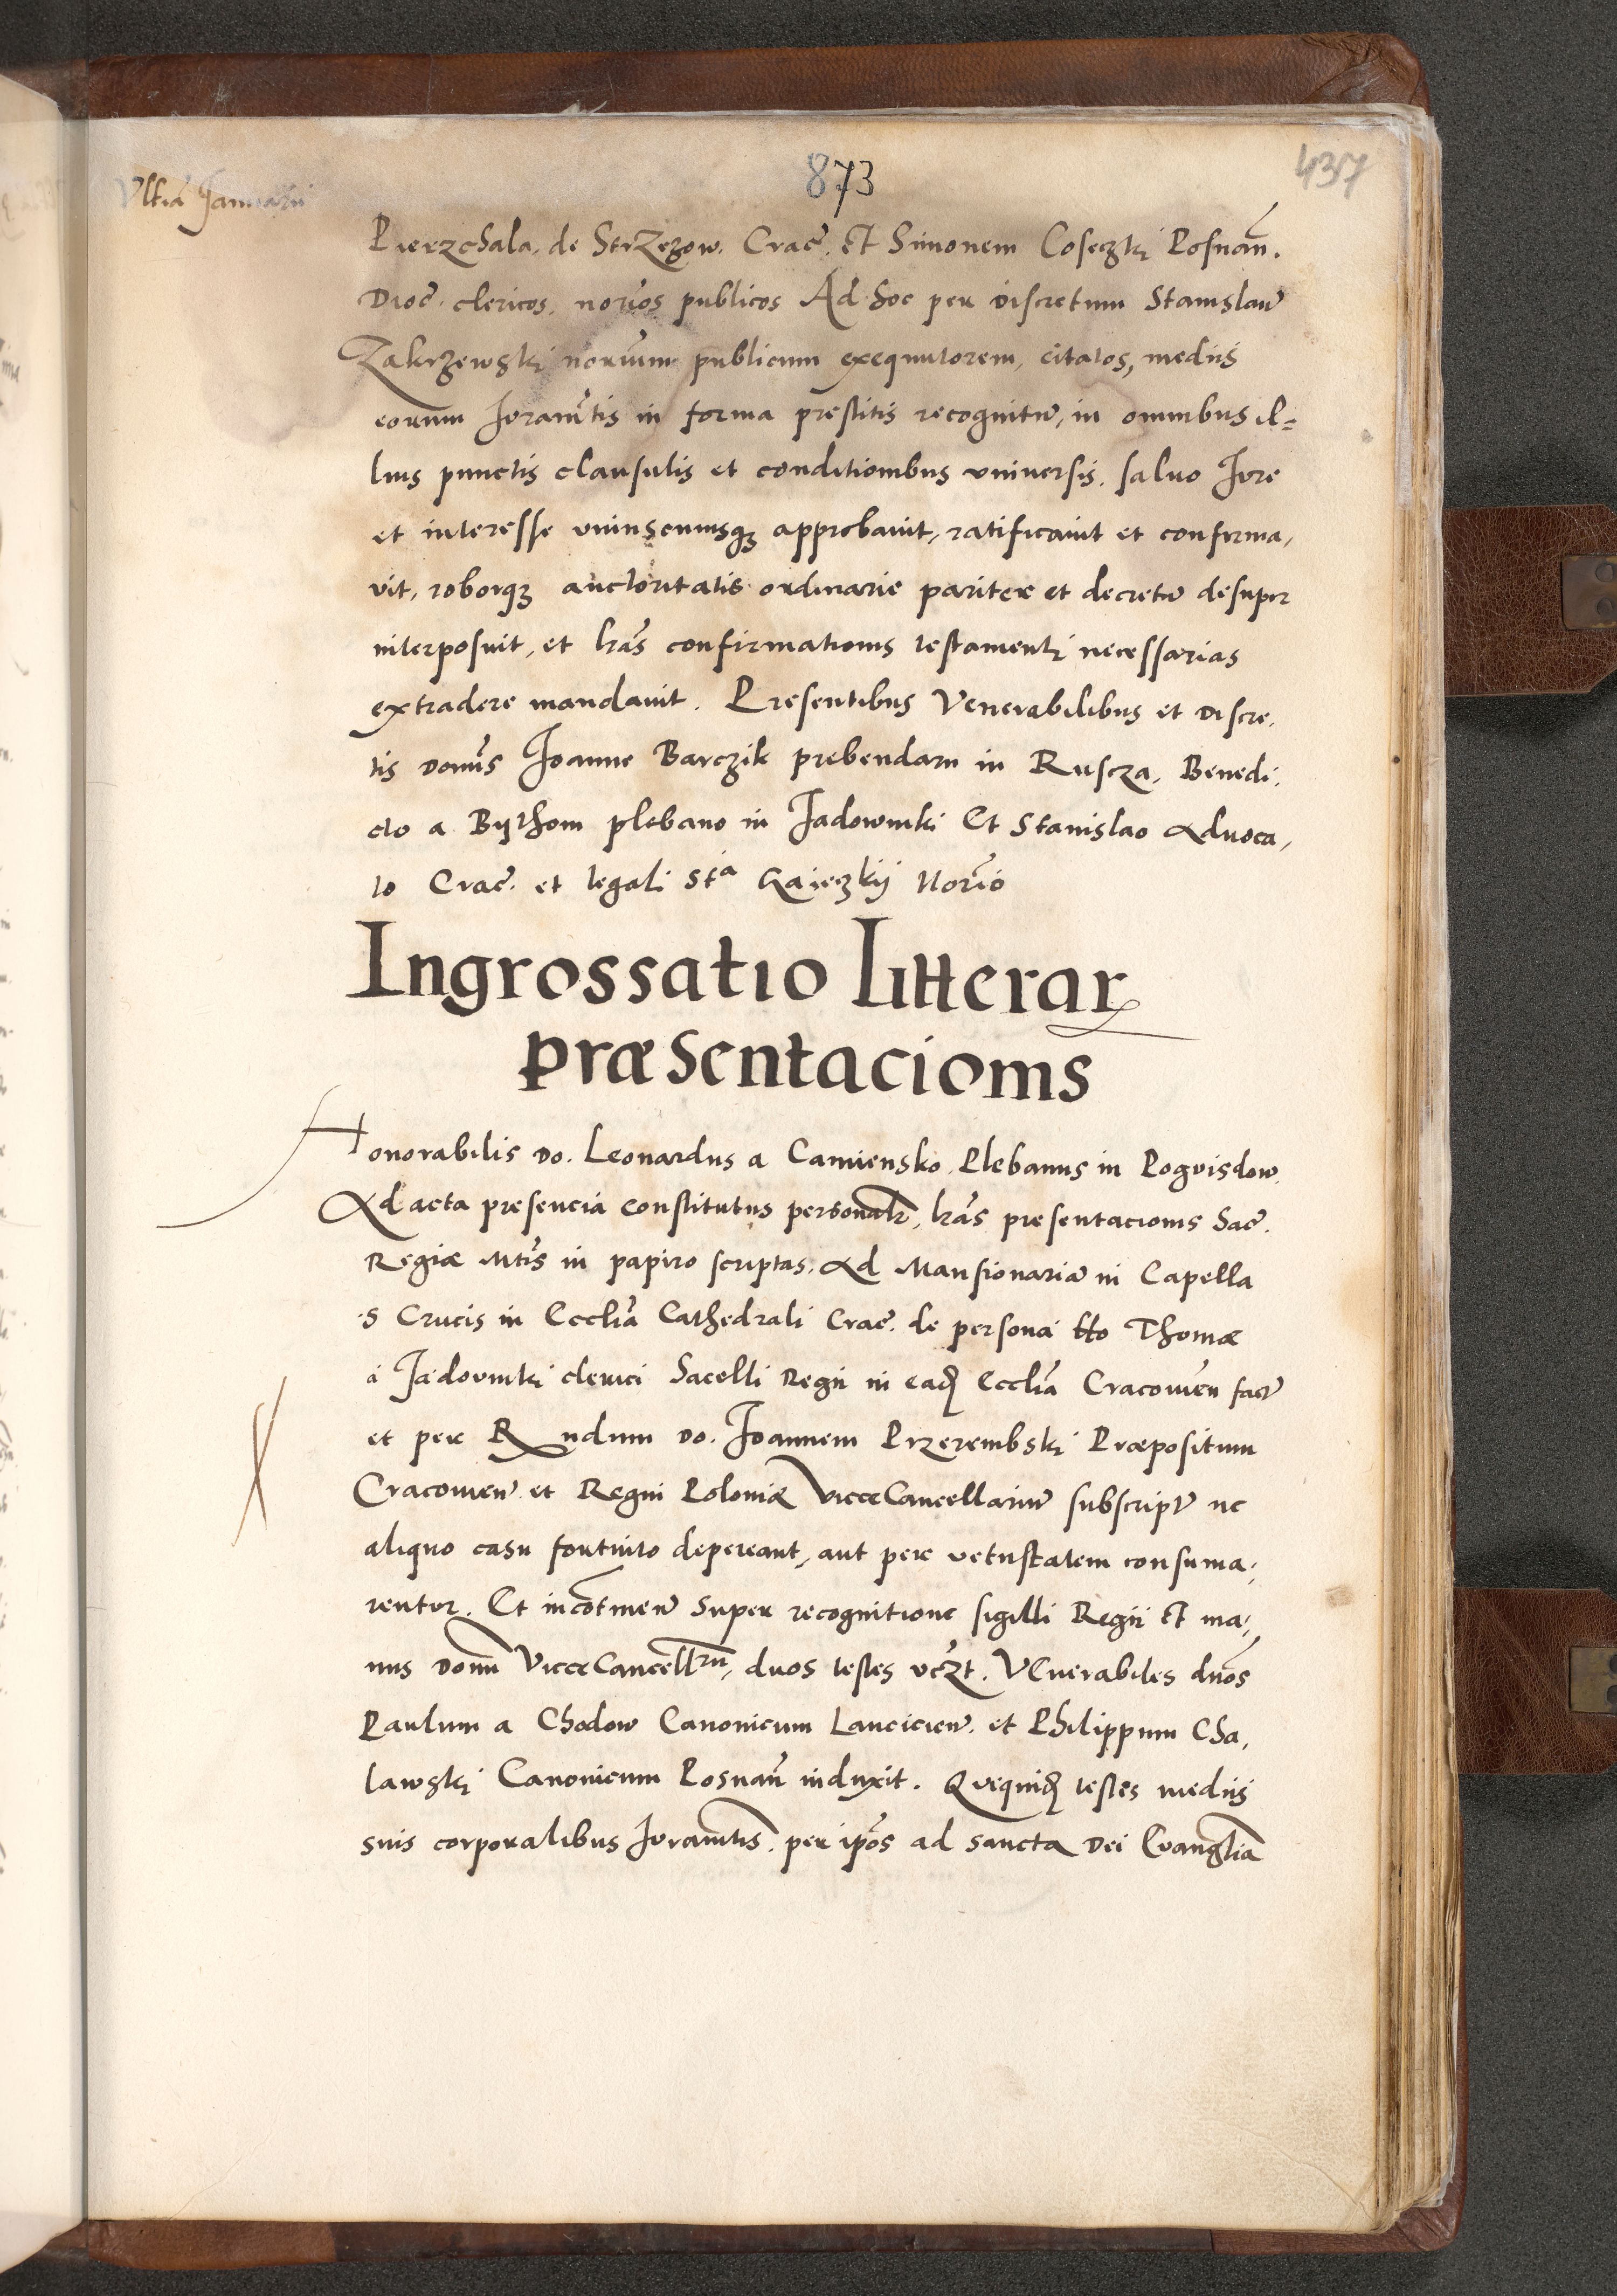 873
437
Vltiã Januarii
Pierzchala, de Strzezow. Crac̃. et Simonem Coseczki Posnañ.
Dioc̃. clericos, norĩos publicos Ad hoc per discretum Stanislaũ
Zakrzewski noriũm publicum exequutorem, citatos, mediis
eorum Juramẽtis in forma prestitis recognitũ, in omnibus il=
lius punctis clausulis et conditionibus vniuersis, saluo Jure
et interesse vniuscuiusqȝ approbauit, ratificauit et confirma,
vit, roborqȝ auctoritatis ordinarie pariter et decretũ desuper
interposuit, et lrãs confirmationis testamenti necessarias
extradere mandauit. Presentibus Venerabilibus et discre,
tis domĩs Joanne Barczik prebendario in Ruscza, Benedi,
cto a Bythom plebano in Jadowniki Et Stanislao Aduoca,
to Crac̃. et legali Sta Gaieczkij Norĩo
Ingrossatio Litterarꝝ
præsentacionis
Honorabilis do. Leonardus a Camiensko, Plebanus in Pogvisdow,
Ad acta presencia constitutus personalr̃, lrãs presentacionis Sac̃.
Regiæ Mtĩs in papiro scriptas, Ad Mansionariã in Capella
S Crucis in Ecclĩa Cathedrali Crac̃. de persona tto Thomæ
a Jadovniki clerici Sacelli Regii in eadȝ Ecclĩa Cracouieñ factã
et per Rndum do. Joannem Przerembski Præpositum
Cracouieñ. et Regni Poloniæ ViceCancellariũ subscriptã ne
aliquo casu fortuito depereant, aut per vetustatem consuma,
rentur. Et incõtineñ super recognitione sigilli Regii et ma,
nus domĩ ViceCancellrii, duos testes vcz̃t. VEnerabiles dnõs
Paulum a Chodow Canonicum Lancicieñ. et Philippum Cha,
lawski Canonicum Posnañ induxit. Quequidȝ testes mediis
suis corporalibus Juramẽtis, per ipõs ad sancta Dei Euanglĩa